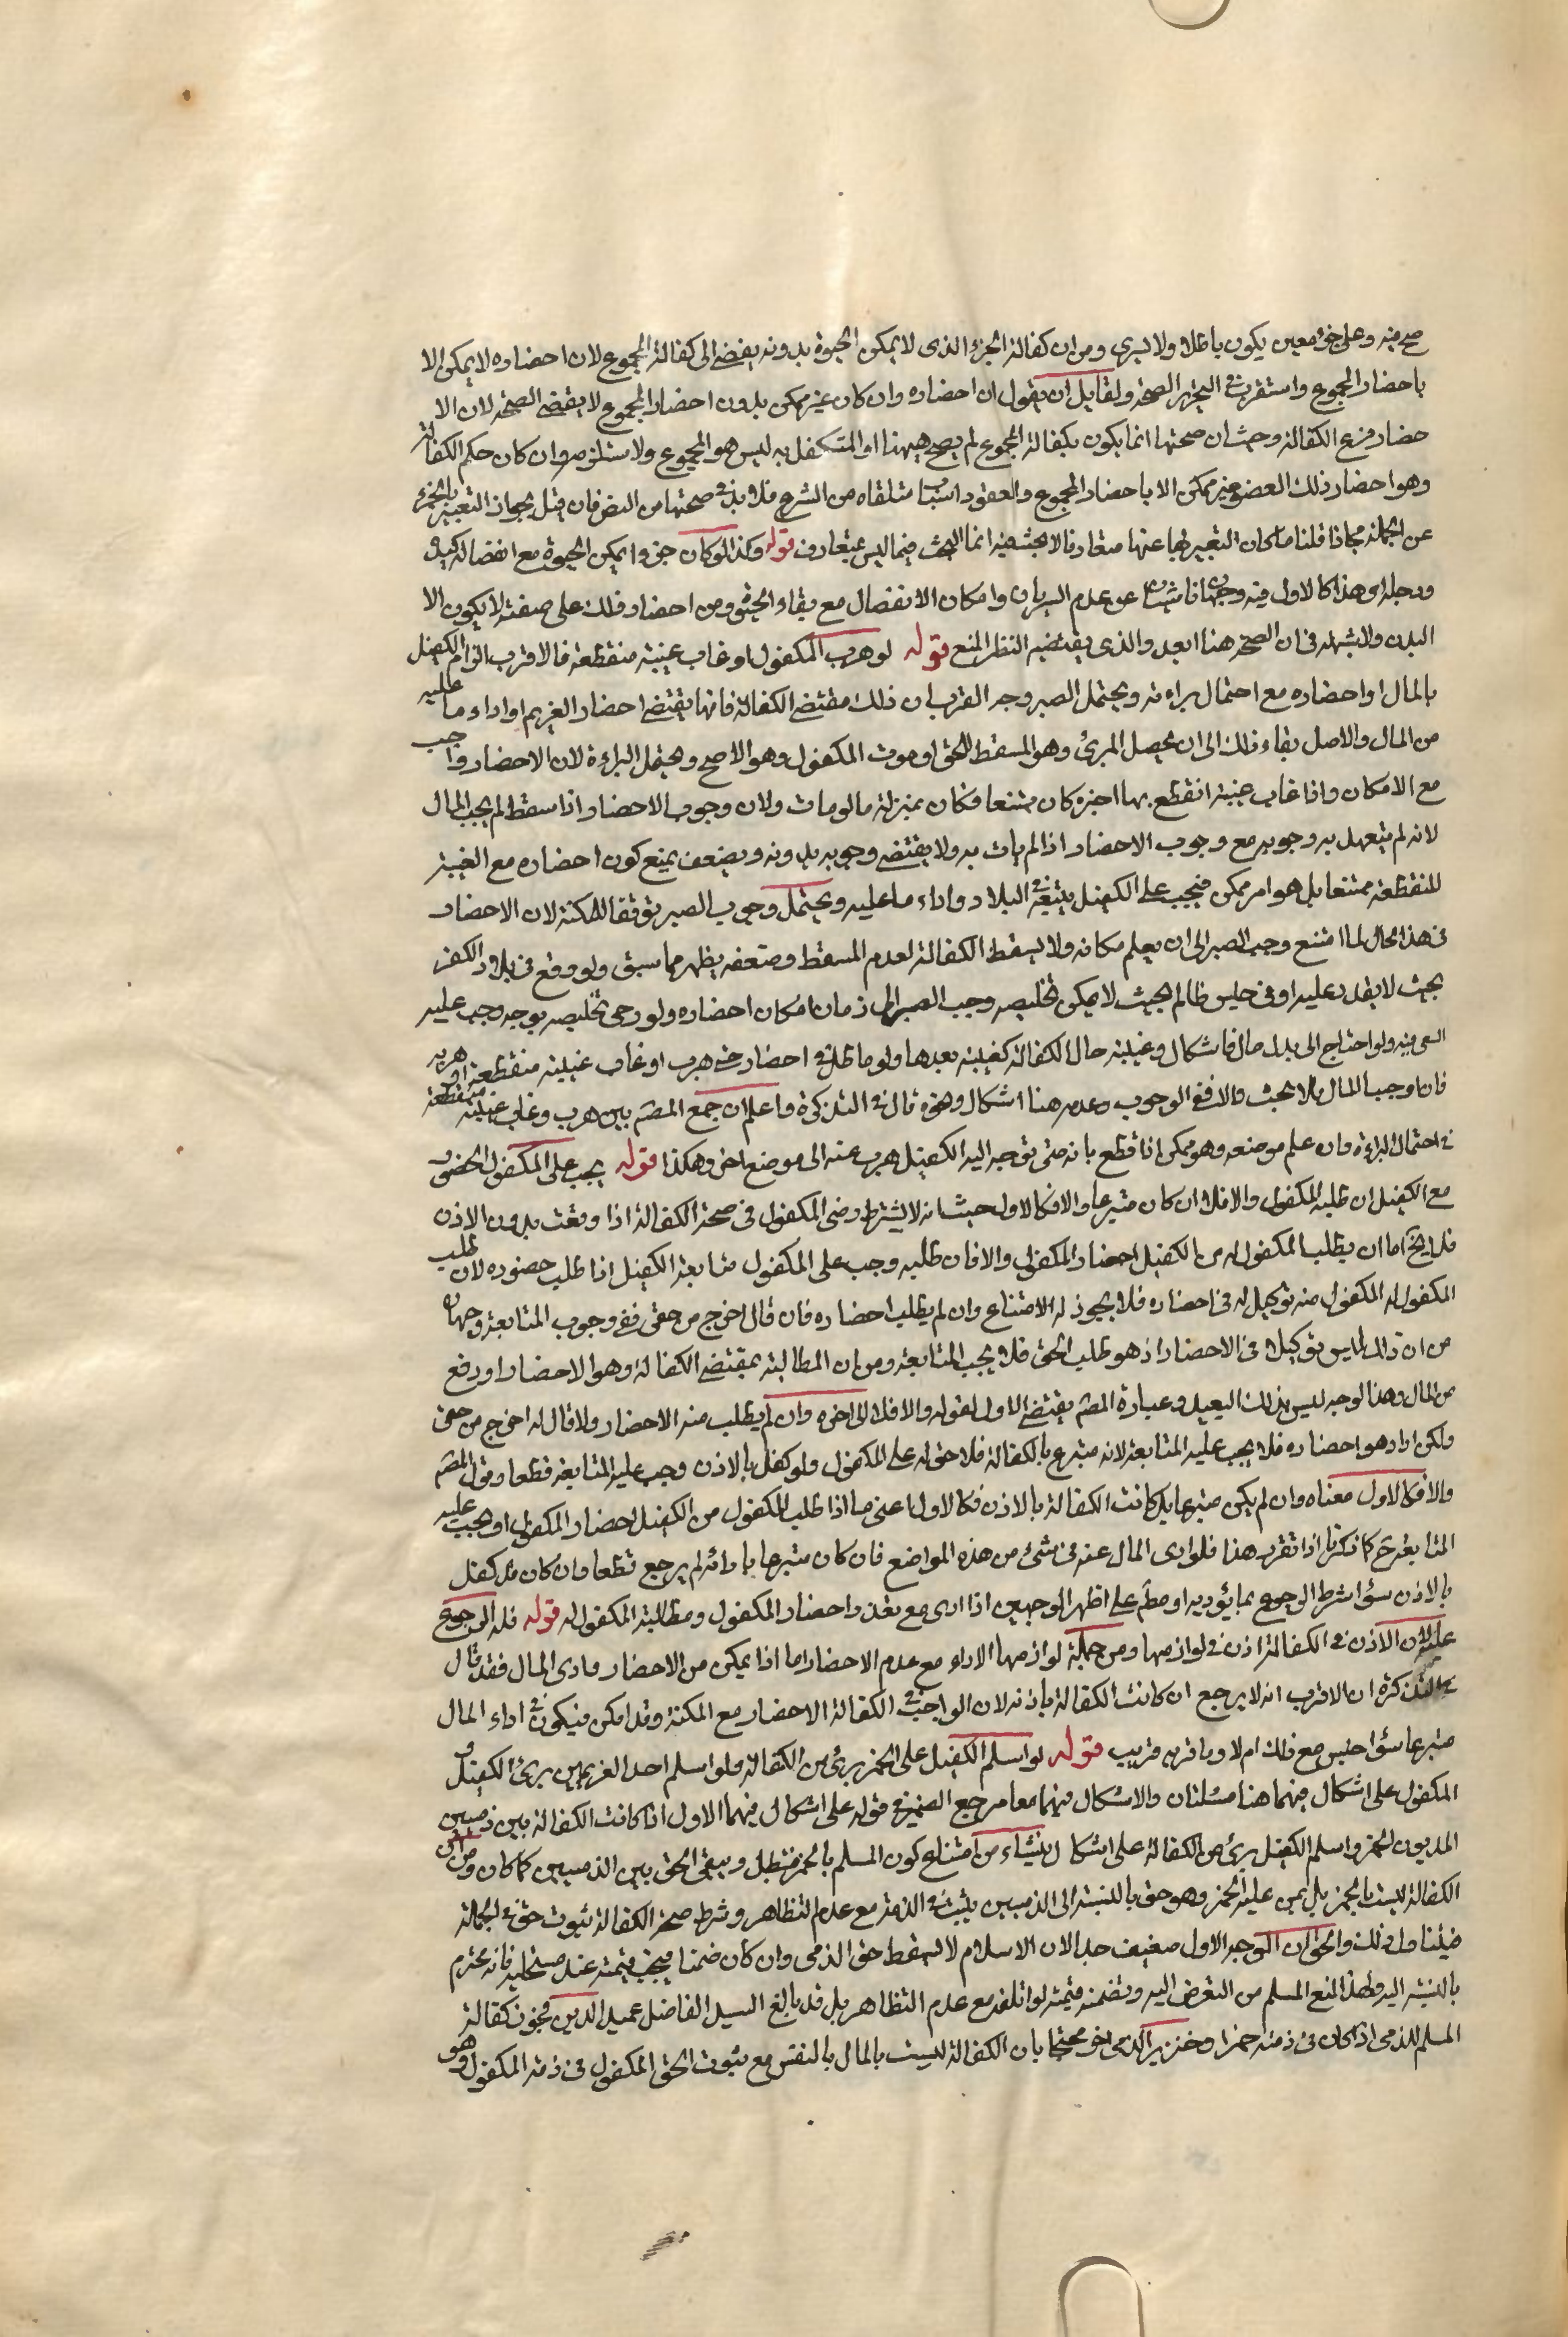 صح فيه وعلى جزء معين يكون باطلا ولا يسرى ومن ان كفالة الجزء الذى لا يمكن الحيوة بدونه يفضى الى كفالة المجموع لان احضاره لا يمكن الا
باحضار المجموع واستقرب فى التحرير الصحة ولقايل ان يقول ان احضاره وان كان غير ممكن بدون احضار المجموع لا يقتضى الصحة لان الا
حضار فرع الكفالة وحيث ان صحتها انما يكون بكفالة المجموع لم يصح هيهنا اذ المتكفل به ليس هو المجموع ولا يستلزمه وان كان حكم الكفالة
وهو احضار ذلك العضو غير ممكن الا باحضار المجموع والعقود اسباب متلقاه من الشرع فلا بد فى صحتها من النص فان قيل يجوز التعبير بالجزء
عن الجملة مجازا قلنا ما كان التعبير بها عنها متعارفا لا بحث فيه انما البحث فيما ليس بمتعارف قوله وكذا لو كان جزوا يمكن الحيوة مع انفصاله كيده
ورجله اى هذا كالاول فيه وجهان ناشيان عن عدم السريان وامكان الانفصال مع بقاء الحيوة ومن احضار ذلك على صفته لا يكون الا
البدن ولا شبهة فى ان الصحة هنا ابعد والذى يقتضيه النظر المنع قوله لو هرب المكفول او غاب غيبة منقطعة فالاقرب الزام الكفيل
بالمال او احضاره مع احتمال براءته ويحتمل الصبر وجه القرب ان ذلك مقتضى الكفالة فانها يقتضى احضار الغريم او اداء ما عليه
من المال والاصل بقاء ذلك الى ان يحصل المبرئ وهو المسقط للحق او موت المكفول وهو الاصح ويحتمل البراءة لان الاحضار واجب
مع الامكان واذا غاب غيبة انقطع بها اخبره كان ممتنعا فكان بمنزلة ما لو مات ولان وجوب الاحضار اذا سقط لم يجب المال
لانه لم يتعهد به وجوبه مع وجوب الاحضار اذا لم يات به ولا يقتضى وجوبه بدونه ويضعف بمنع كون احضاره مع الغيبة
المنقطعة ممتنعا بل هو امر ممكن فيجب على الكفيل تتبعه فى البلاد واداء ما عليه ويحتمل وجوب الصبر توقعا للمكنة لان الاحضار
فى هذا الحال لما امتنع وجب الصبر الى ان يعلم مكانه ولا يسقط الكفالة لعدم المسقط وضعفه يظهر مما سبق ولو وقع فى بلاد الكفر
بحيث لا يقدر عليه او فى حبس ظالم بحيث لا يمكن تخليصه وجب الصبر الى زمان امكان احضاره ولو رجى تخليصه بوجه وجب عليه
السعى فيه ولو احتاج الى بذل مال فاشكال وغيبته حال الكفالة كغيبته بعدها ولو ماطل فى احضاره حتى هرب او غاب غيبته منقطعة او هربه
فان اوجب المال فلا بحث والا ففى الوجوب وعدمه هنا اشكال ونحوه قال فى التذكرة واعلم ان جمع المصنف بين هرب وغاب غيبته منقطعة
فى احتمال البراءة وان علم موضعه وهو ممكن اذا قطع بانه متى توجه اليه الكفيل هرب عنه الى موضع اخر وهكذا قوله يجب على المكفول الحضور
مع الكفيل ان طلبه المكفول والا فلا ان كان متبرعا والا فكالاول حيث انه لا يشترط رضى المكفول فى صحة الكفالة اذا وقعت بدون الاذن
فلا يخ اما ان يطلب المكفول له من الكفيل احضار المكفول والا فان طلبه وجب على المكفول متابعة الكفيل اذا طلب حضوره لان طلب
المكفول له المكفول منه توكيل له فى احضاره فلا يجوز له الامتناع وان لم يطلب احضاره فان قال اخرج من حقى ففى وجوب المتابعة وجهان
من ان ذلك ليس توكيلا فى الاحضار اذ هو طلب الحق فلا يجب المتابعة ومن ان المطالبة بمقتضى الكفالة وهو الاحضار او دفع
من المال وهذا الوجه ليس بذلك البعيد وعبارة المصنف يقتضى الاول لقوله والا فلا الى اخره وان لم يطلب منه الاحضار ولا قال له اخرج من حقى
ولكن اراد هو احضاره فلا يجب عليه المتابعة لانه متبرع بالكفالة فلا حق له على المكفول ولو كفل بالاذن وجب عليه المتابعة قطعا وقول المصنف
والا فكالاول معناه وان لم يكن متبرعا بل كانت الكفالة بالاذن فكالاول اعنى ما اذا طلب المكفول من الكفيل احضار المكفول او يجب عليه
المتابعة ح كما ذكرنا اذا تقرر هذا فلو ادى المال عنه فى شئ من هذه المواضع فان كان متبرعا بادائه لم يرجع قطعا وان كان قد كفل
بالاذن سواء شرط الرجوع بما يؤديه او مطلقا على اظهر الوجهين اذا ادى مع تعذر احضار المكفول ومطالبة المكفول له قوله فله الرجوع
عليه لان الاذن فى الكفالة اذن فى لوازمها ومن جملة لوازمها الاداء مع عدم الاحضار اما اذا يمكن من الاحضار وادى المال فقد قال
فى التذكرة ان الاقرب انه لا يرجع ان كانت الكفالة باذنه لان الواجب فى الكفالة الاحضار مع المكنة وقد امكن فيكون فى اداء المال
متبرعا سواء حبس مع ذلك ام لا وما قربه قريب قوله لو اسلم الكفيل على الخمر برئ من الكفالة ولو اسلم احد الغريمين برئ الكفيل و
المكفول على اشكال فيهما هنا مسئلتان والاشكال فيهما معا مرجع الضمير فى قوله على اشكال فيهما الاول اذا كانت الكفالة بين ذميين
المديون الخمر واسلم الكفيل برئ من الكفالة على اشكال ينشاء من امتناع كون المسلم بالخمر فتبطل ويبقى الحق بين الذميين كما كان ومن ان
الكفالة ليست بالخمر بل بمن عليه الخمر وهو حق بالنسبة الى الذميين يثبت فى الذمة مع عدم التظاهر وشرط صحة الكفالة ثبوت حق فى الجملة
فيتناول ذلك والحق ان الوجه الاول ضعيف جدا لان الاسلام لا يسقط حق الذمى وان كان ضمنا فيجب قيمته عند مستحليه فانه محترم
بالنسبة اليه ولهذا المنع المسلم من التعرض اليه وتضمنه قيمته لو اتلفه مع عدم التظاهر بل قد بالغ السيد الفاضل عميد الدين فجوز كفالة
المسلم للذمى اذا كان فى ذمته خمرا وخنزير لذمى اخر محتجا بان الكفالة ليست بالمال بالنفس مع ثبوت الحق المكفول فى ذمة المكفول وهو